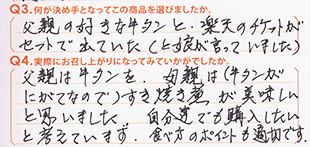 Q3.何が決め手となってこの商品を選びましたか。
父親の好きな牛タンと、楽天のチケットが
セットで出ていた(と娘が言っていました)
Q4.実際にお召し上がりになってみていかがでしたか。
父親は牛タンを、母親は(牛タンが
にがてなので)すき焼き煮が美味しい
と思いました。自分達でも購入したい
と考えています。食べ方のポイントも適切です。